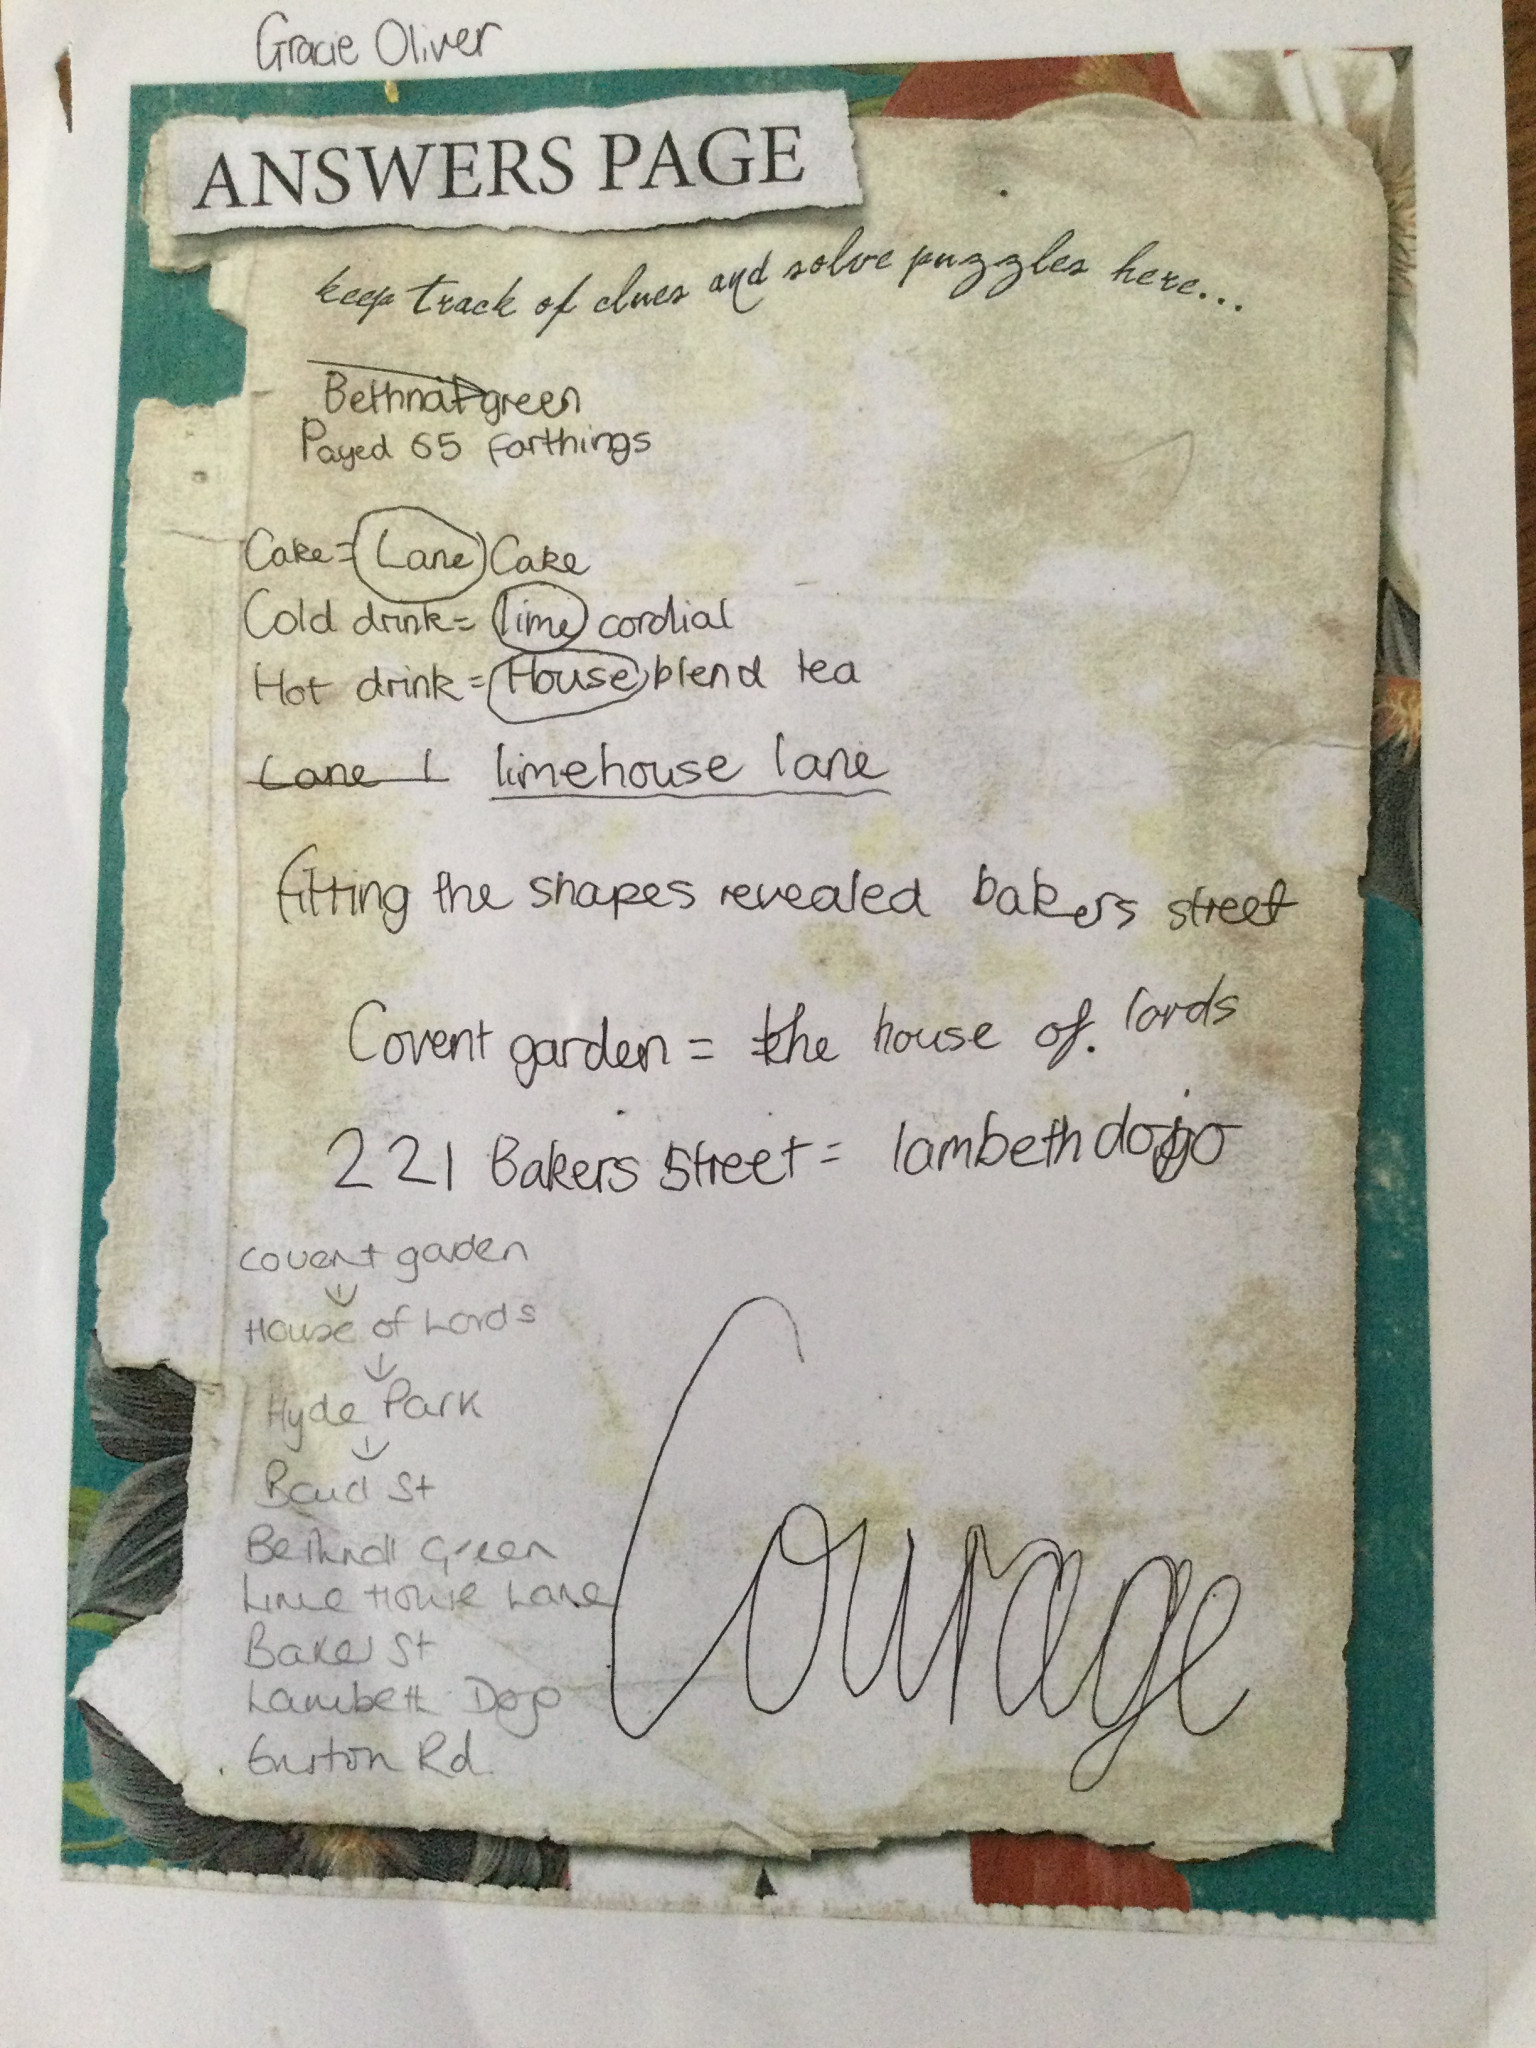 Gracie Oliver
ANSWERS PAGE
keep track of clues and solve puzzles here...
Bethnal green
Payed 65 farthings
Cake= Lane Cake
Cold drink= lime cordial
Hot drink= House blend tea
Lane l limehouse lane
fitting the shapes revealed bakers street
Covent garden = the house of. lords
221 Bakers Street = lambeth dojo
Covent garden
↓
House of Lords
↓
Hyde Park
↓
Bond St
Bethnall Green
Lime House Lane
Baker St
Lambeth Dojo
Euston Rd.
Courage